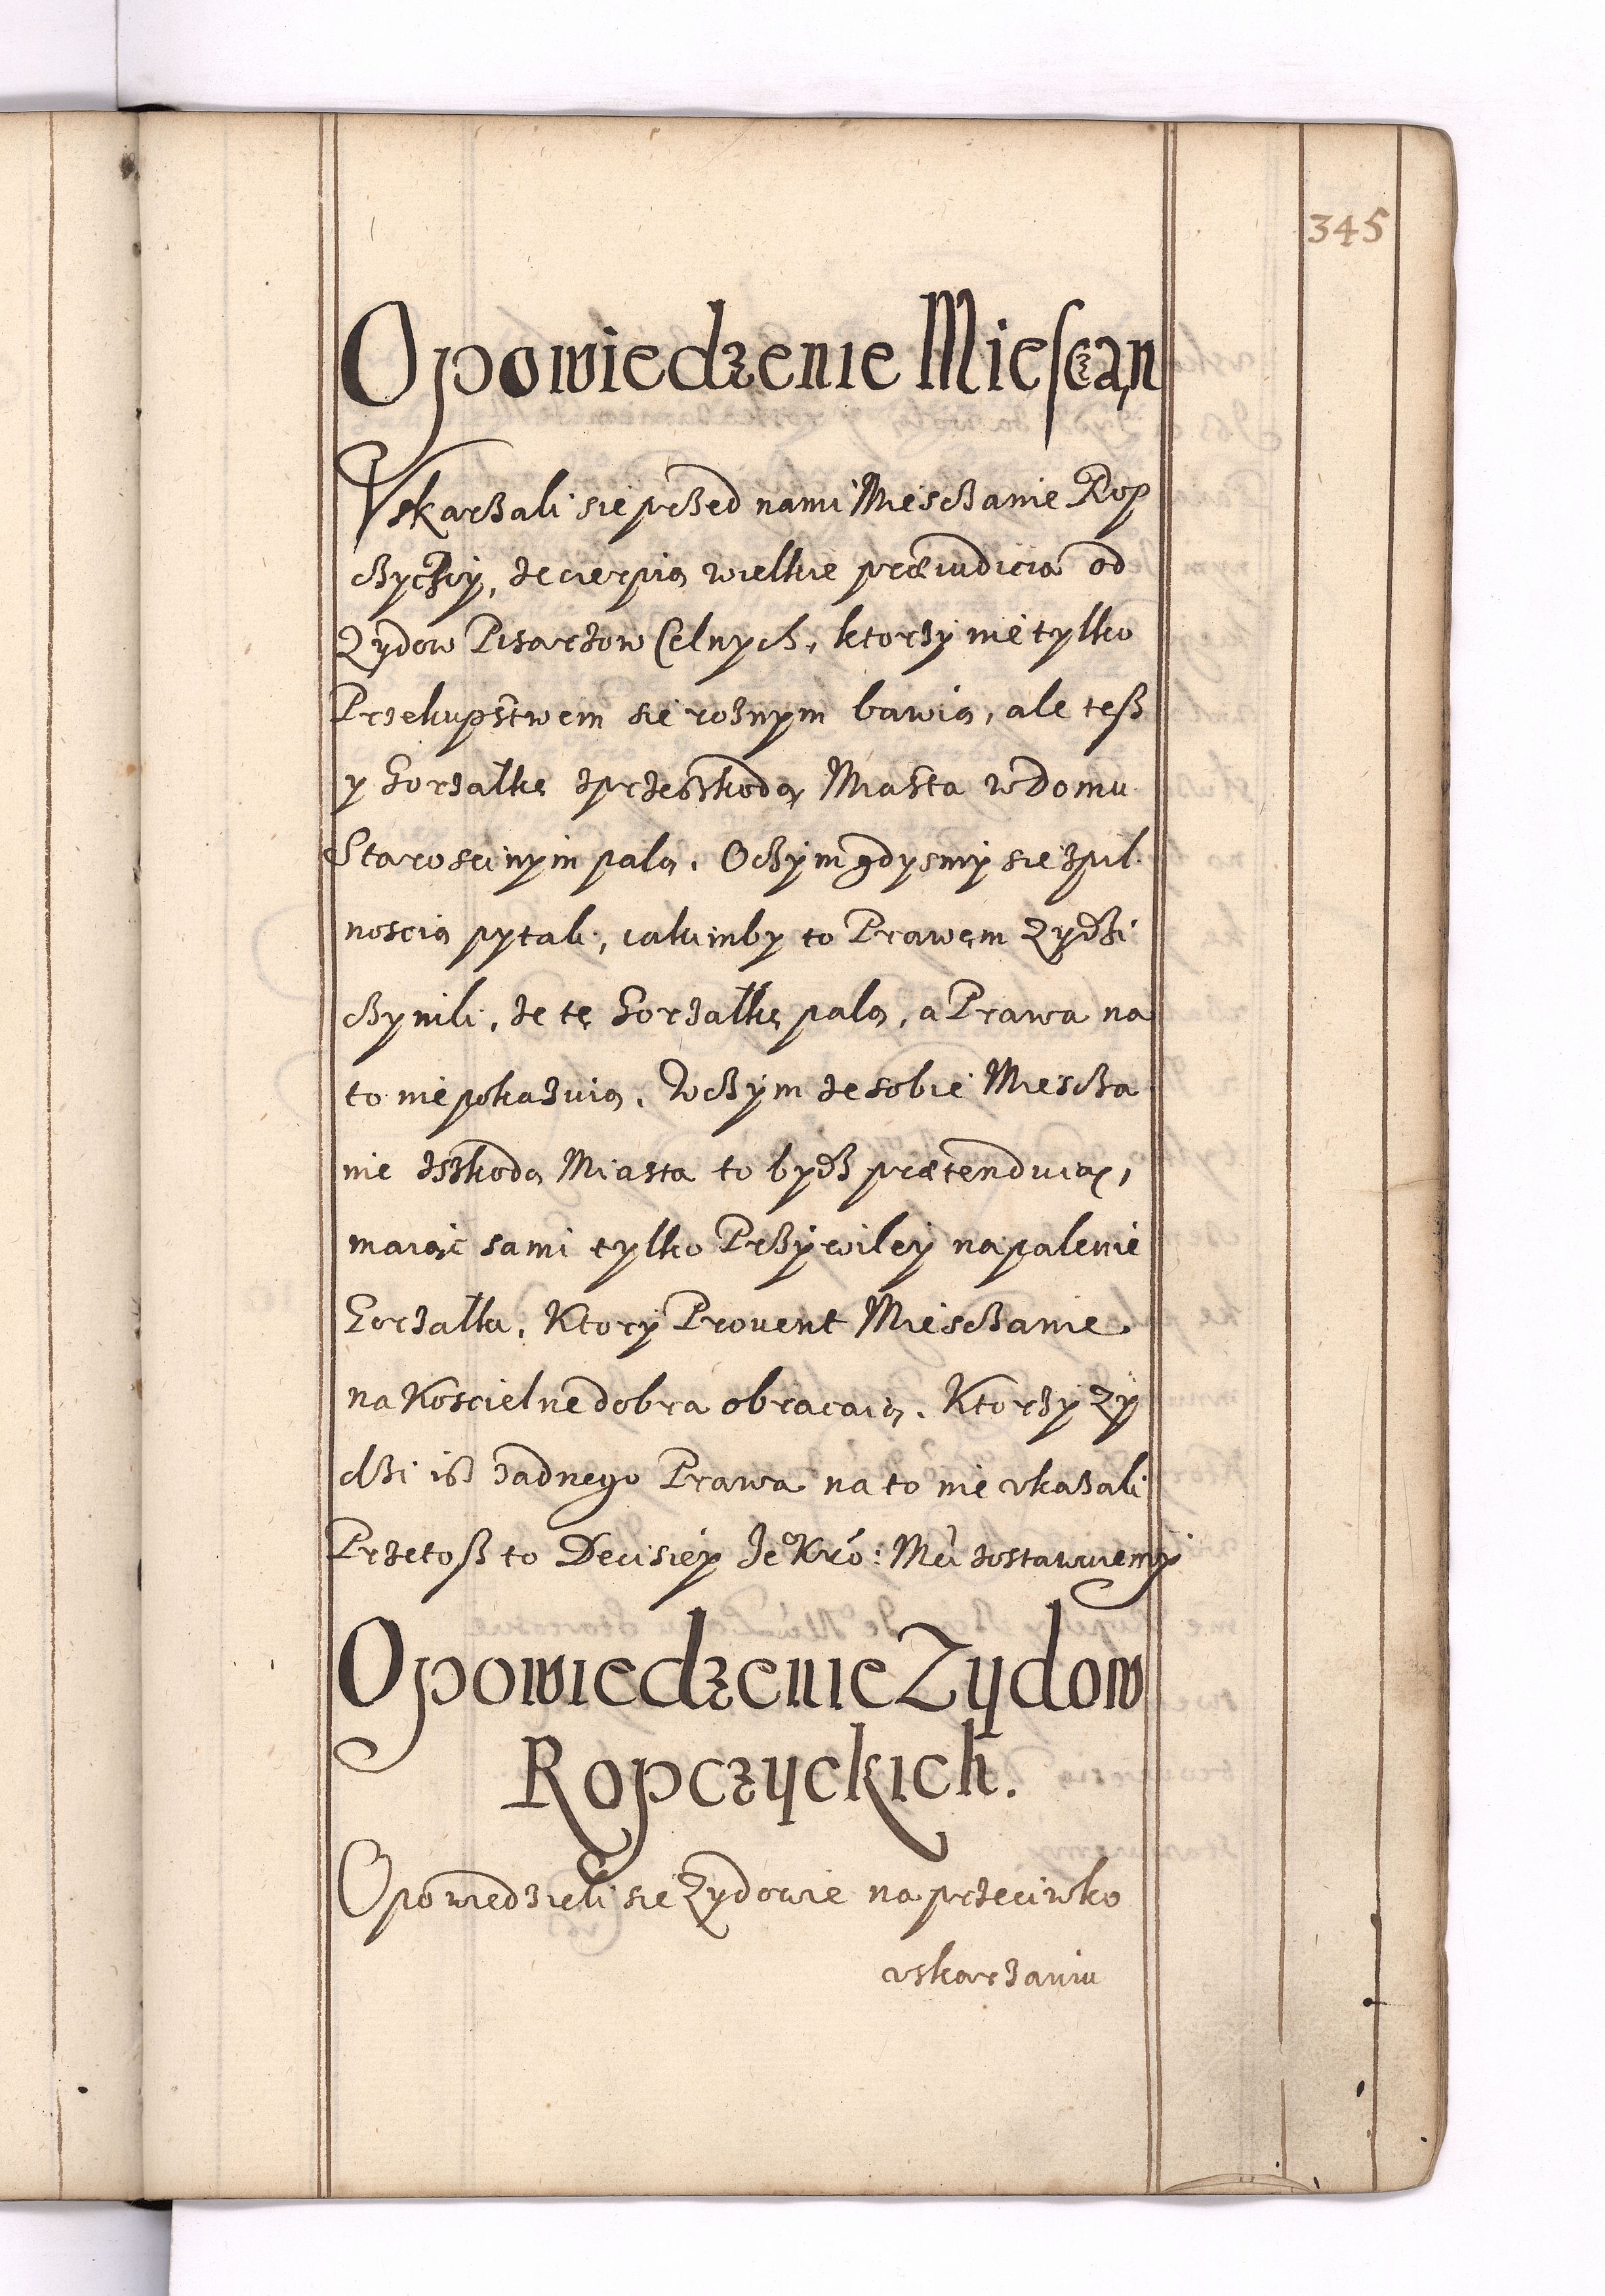 345
Opowiedzenie Miesczan
Vskarżali się przed nami Mieszczanie Rop
czyccy, że cierpią wielkie præiudicia od
Zydow Pisarzow Celnych, ktorzy nie tylko
Przekupstwem się roznym bawią, ale tesz
y Gorzałkę zprzeszkodą Miasta w domu
Staroscinym palą. O czym gdysmy się zpil
noscią pytali, iakimby to Prawem Zydzi
czynili, że tę Gorzałkę palą, a Prawa na
to nie pokazuią. W czym że sobie Miescza
nie zszkodą Miasta to bydz prætenduią,
maiąc sami tylko Przywiley na palenie
Gorzałki, Ktory Prouent Miesczanie
na Koscielne dobra obracaią. Ktorzy Zy
dzi isz żadnego Prawa na to nie vkazali
Przetosz to Decisiey Je° Kró: Mći zostawuiemy
Opowiedzenie Zydow
Ropczyckich.
Opowiedzieli się Zydowie naprzeciwko
vskarzaniu